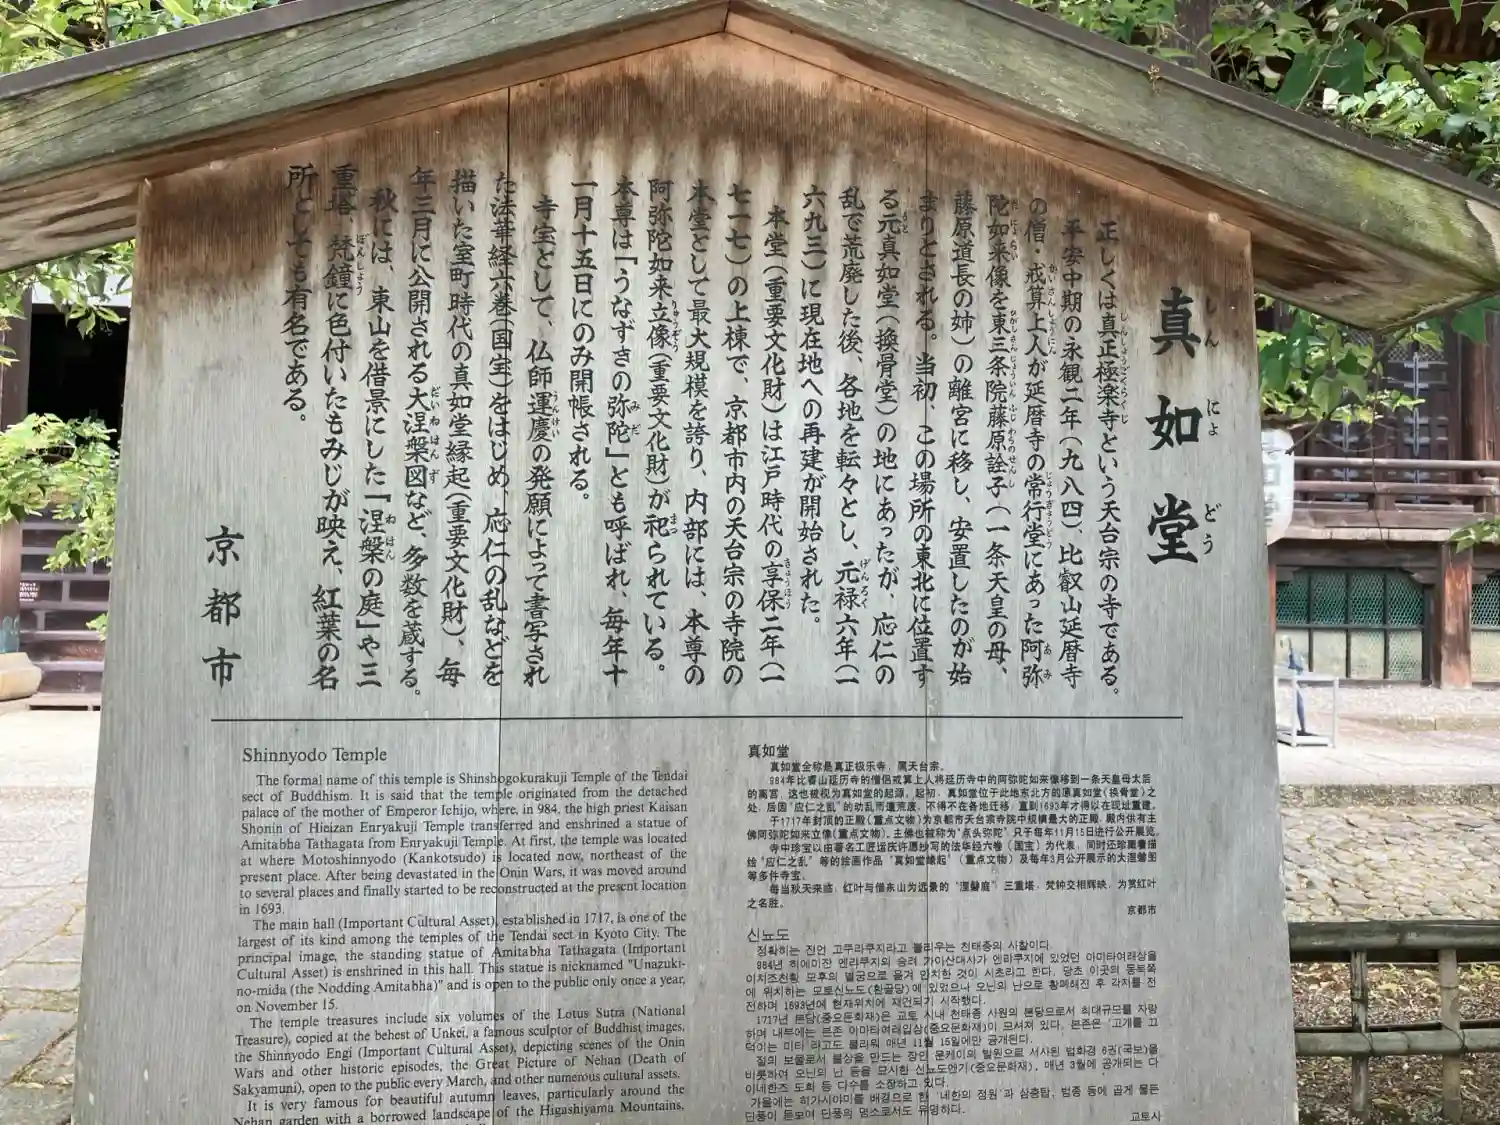 真如堂
正しくは真正極楽寺という天台宗の寺である。
平安中期の永観二年(九八四)、比叡山延暦寺
の僧・戒算上人が延暦寺の常行堂にあった阿弥
陀如来像を東三条院藤原詮子(一条天皇の母、
藤原道長の姉)の離宮に移し、安置したのが始
まりとされる。当初、この場所の東北に位置す
る元真如堂(換骨堂)の地にあったが、応仁の
乱で荒廃した後、各地を転々とし、元禄六年(一
六九三)に現在地への再建が開始された。
本堂(重要文化財)は江戸時代の享保二年(一
七一七)の上棟で、京都市内の天台宗の寺院の
本堂として最大規模を誇り、内部には、本尊の
阿弥陀如来立像(重要文化財)が祀られている。
本尊は「うなずきの弥陀」とも呼ばれ、毎年十
一月十五日にのみ開帳される。
寺宝として、仏師運慶の発願によって書写され
た法華経六巻(国宝)をはじめ、応仁の乱などを
描いた室町時代の真如堂縁起(重要文化財)、毎
年三月に公開される大涅槃図など、多数を蔵する。
秋には、東山を借景にした「涅槃の庭」や三
重塔、梵鐘に色付いたもみじが映え、紅葉の名
所としても有名である。
京都市
Shinnyodo Temple
The formal name of this temple is Shinshogokurakuji Temple of the Tendai
sect of Buddhism. It is said that the temple originated from the detached
palace of the mother of Emperor Ichijo, where, in 984, the high priest Kaisan
Shonin of Hieizan Enryakuji Temple transferred and enshrined a statue of
Amitabha Tathagata from Enryakuji Temple. At first, the temple was located
at where Motoshinnyodo (Kankotsudo) is located now, northeast of the
present place. After being devastated in the Onin Wars, it was moved around
to several places and finally started to be reconstructed at the present location
in 1693.
The main hall (Important Cultural Asset), established in 1717, is one of the
largest of its kind among the temples of the Tendai sect in Kyoto City. The
principal image, the standing statue of Amitabha Tathagata (Important
Cultural Asset) is enshrined in this hall. This statue is nicknamed "Unazuki-
no-mida (the Nodding Amitabha)" and is open to the public only once a year,
on November 15.
The temple treasures include six volumes of the Lotus Sutra (National
Treasure), copied at the behest of Unkei, a famous sculptor of Buddhist images,
the Shinnyodo Engi (Important Cultural Asset), depicting scenes of the Onin
Wars and other historic episodes, the Great Picture of Nehan (Death of
Sakyamuni), open to the public every March, and other numerous cultural assets.
It is very famous for beautiful autumn leaves, particularly around the
Nehan garden with a borrowed landscape of the Higashiyama Mountains,
真如堂
真如堂全称是真正极乐寺，属天台宗。
984年比睿山延历寺的僧侣戒算上人将延历寺中的阿弥陀如来像移到一条天皇母太后
的离宫，这也被视为真如堂的起源。起初，真如堂位于此地东北方的原真如堂(换骨堂)之
处，后因"应仁之乱"的动乱而遭荒废，不得不在各地迁移，直到1693年才得以在现址重建。
于1717年封顶的正殿(重点文物)为京都市天台宗寺院中规模最大的正殿，殿内供有主
佛阿弥陀如来立像(重点文物)。主佛也被称为"点头弥陀"，只于每年11月15日进行公开展览。
寺中珍宝以由著名工匠运庆许愿抄写的法华经六卷(国宝)为代表，同时还珍藏着描
绘"应仁之乱"等的绘画作品"真如堂缘起"(重点文物)及每年3月公开展示的大涅槃图
等多件寺宝。
每当秋天来临，红叶与借东山为远景的"涅槃庭"三重塔，梵钟交相辉映，为赏红叶
之名胜。
京都市
신뇨도
정확히는 진언 고쿠라쿠지라고 불리우는 천태종의 사찰이다.
984년 히에이잔 엔랴쿠지의 승려 가이산대사가 엔랴쿠지에 있었던 아미타여래상을
이치조천황 모후의 별궁으로 옮겨 안치한 것이 시초라고 한다. 당초 이곳의 동북쪽
에 위치하는 모토신뇨도(환골당)에 있었으나 오닌의 난으로 황폐해진 후 각지를 전
전하며 1693년에 현재위치에 재건되기 시작했다.
1717년 본당(중요문화재)은 교토 시내 천태종 사원의 본당으로서 최대규모를 자랑
하며 내부에는 본존 아마타여래입상(중요문화재)이 모셔져 있다. 본존은 '고개를 끄
덕이는 미타'라고도 불리워 매년 11월 15일에만 공개된다.
절의 보물로서 불상을 만드는 장인 운케이의 발원으로 서사된 법화경 6권(국보)을
비롯하여 오닌의 난 등을 묘사한 신뇨도엔기(중요문화재), 매년 3월에 공개되는 다
이네한즈 도화 등 다수를 소장하고 있다.
가을에는 히가시야마를 배경으로 한 '네한의 정원'과 삼층탑, 범종 등에 곱게 물든
단풍이 돋보여 단풍의 명소로서도 유명하다.
교토시